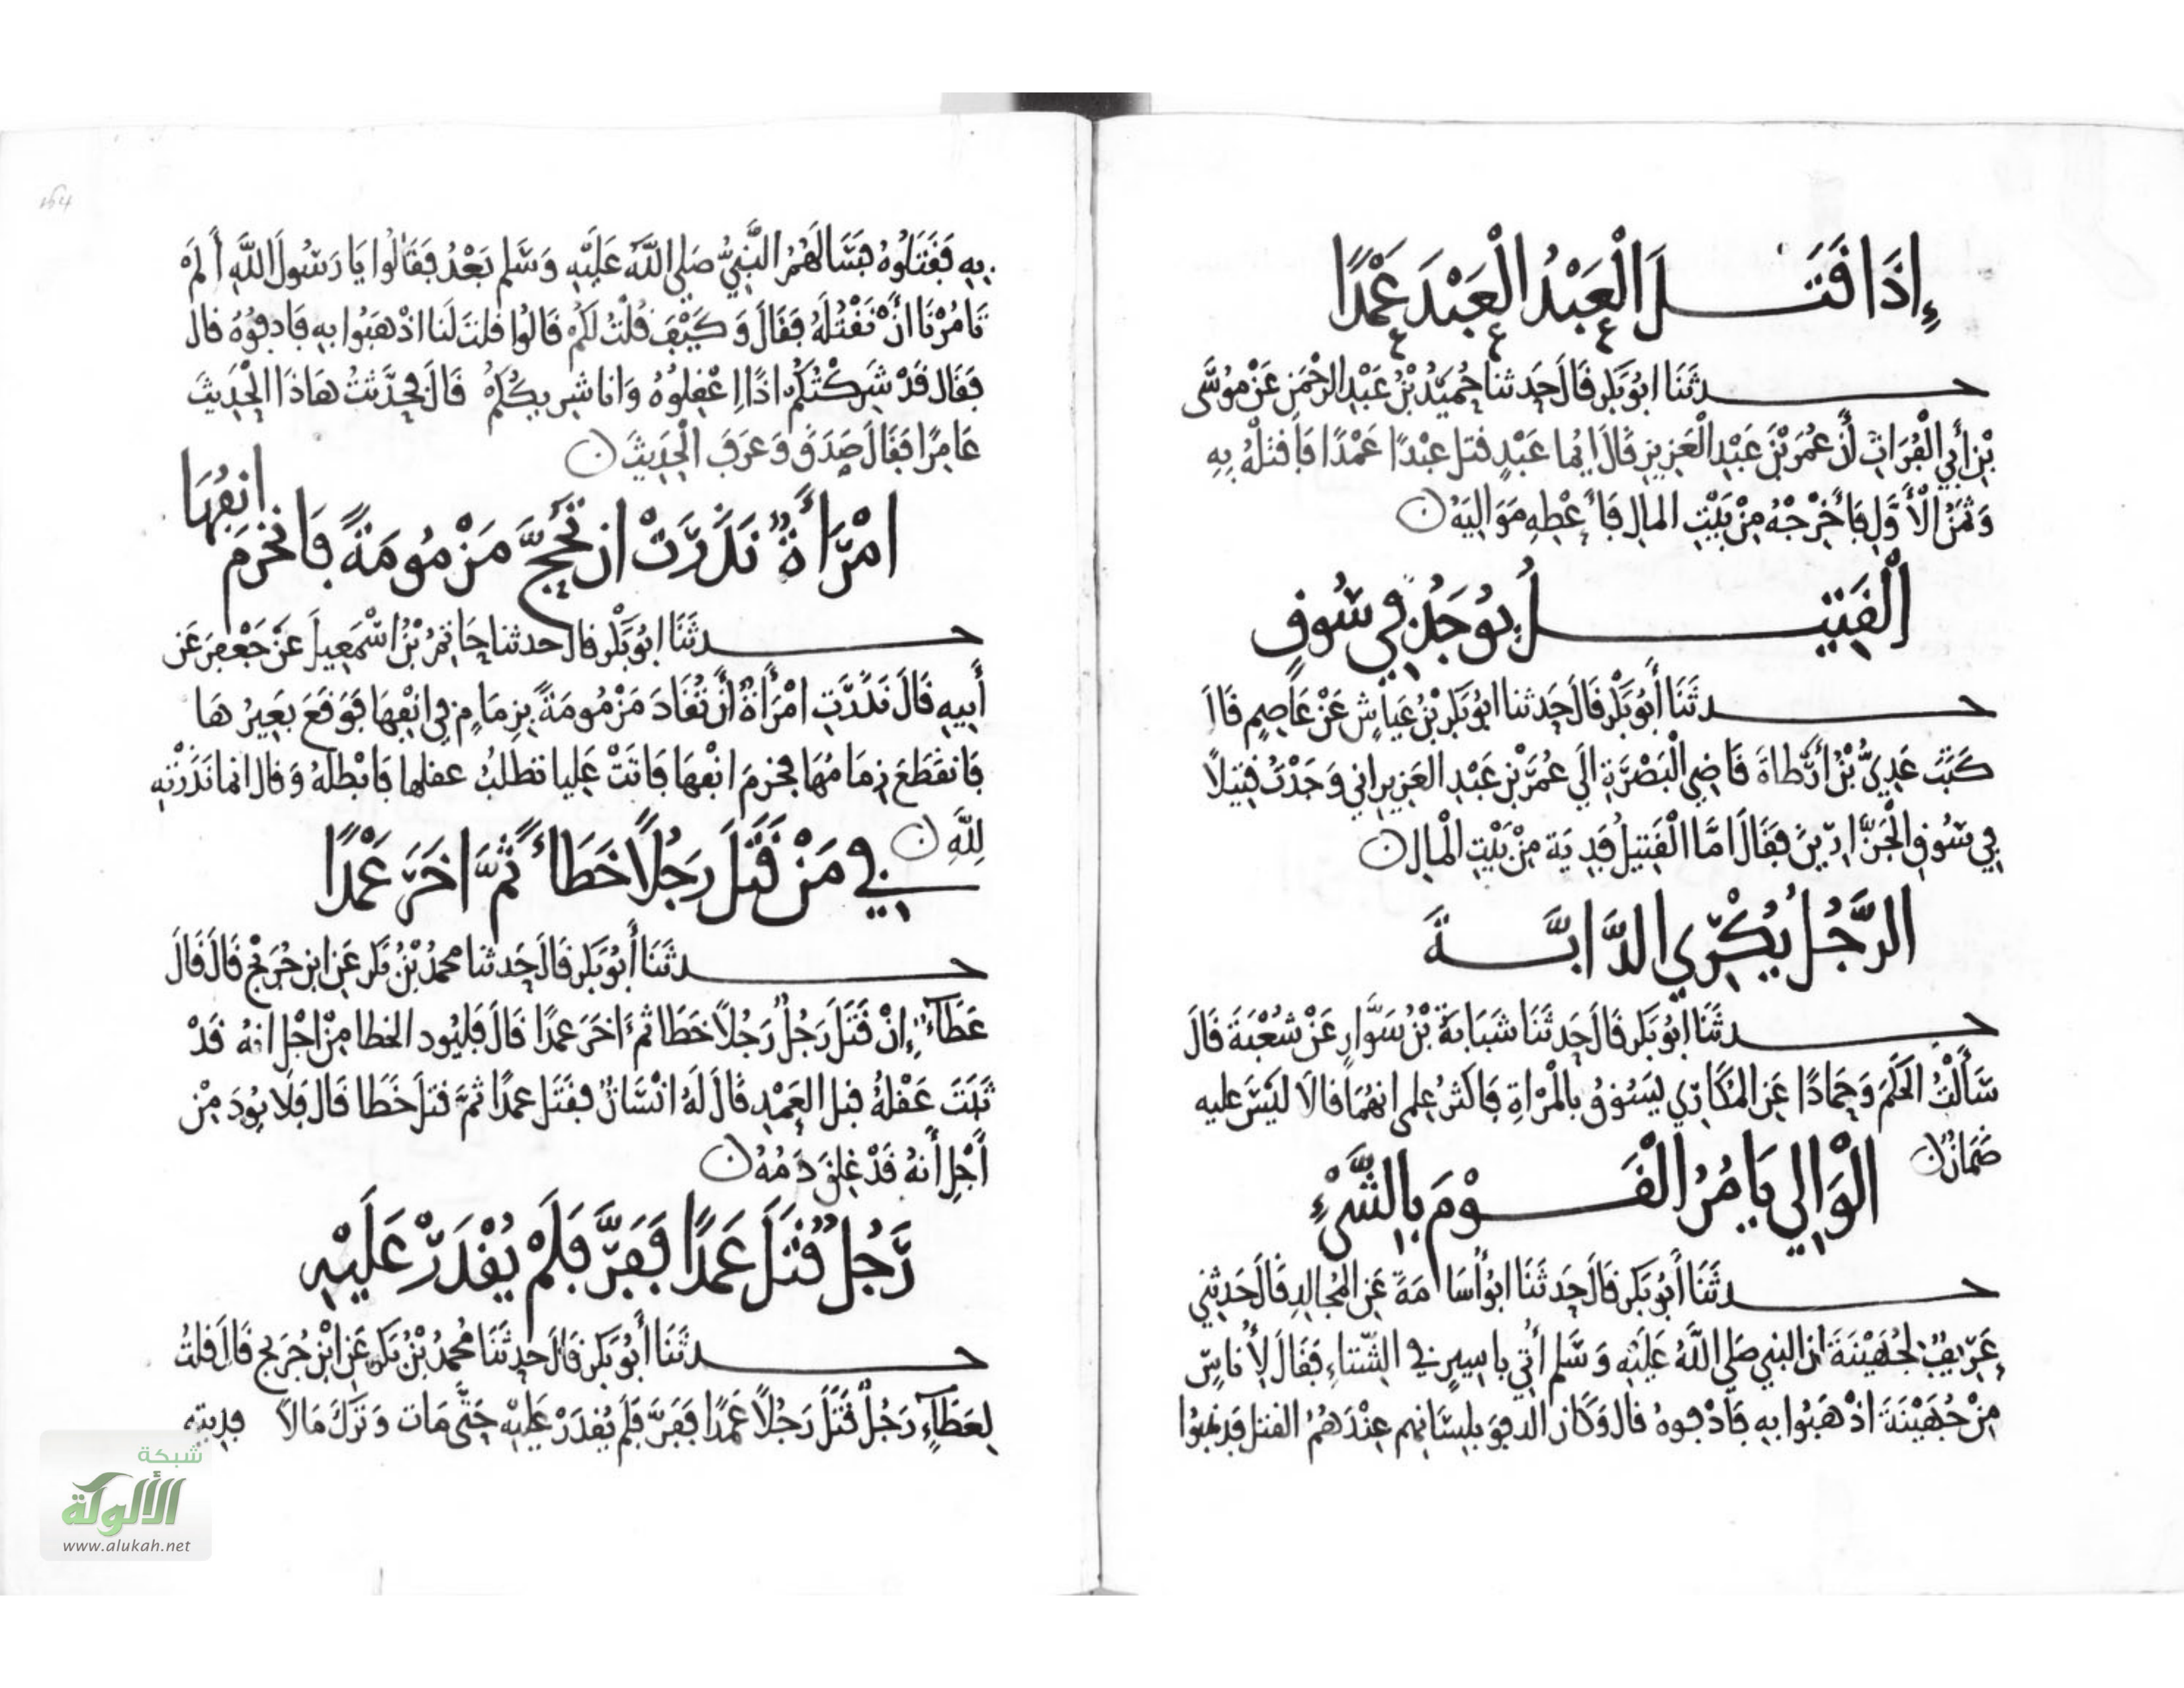 إِذَا قَتَلَ الْعَبْدُ الْعَبْدَ عَمْدًا
حدثَنَا ابُو بَكر قَالَ حَدثنا حُمَيْدُ بْنُ عَبْدِ الرحْمَنِ عَنْ مُوسَى
بْنِ أَبِي الْفُرَاتِ أَنَّ عُمَرَ بْنَ عَبْدِ الْعَزِيزِ قَالَ ايُّما عَبْدٍ قتل عبْدًا عَمْدًا فَاقتلْهُ بِهِ
وَثَمَنُ الْأَوَّلِ فَأَخْرِجْهُ مِنْ بَيْتِ المالِ فَأَعْطِهِ مَوَالِيَهُ
الْقَتِيلُ يُوجَدُ فِي سُوقٍ
حدثَنَا أَبُو بَكْر قَالَ حَدثنا ابُو بَكر بْنُ عَيَّاشٍ عَنْ عَاصِمٍ قَالَ
كَتَبَ عَدِيُّ بْنُ أَرْطاةَ قَاضِي الْبَصْرَةِ الَي عُمَرَ بْنِ عَبْدِ العَزِيزِ اني وَجَدْتُ قَتِيلًا
فِي سُوقِ الْجَزَّارِينَ فَقَالَ امَّا الْقَتِيلُ فَدِيَة مِنْ بَيْتِ الْمالِ
الرَّجُلُ يُكْرِي الدَّابَّةَ
حدثَنَا ابُو بَكر قَالَ حَدثَنَا شَبَابَةُ بْنُ سَوَّارٍ عَنْ شُعْبَةَ قَالَ
سَأَلْتُ الحَكَمَ وَحَمادًا عَنِ المُكَارِي يَسُوقُ بِالْمَرْاةِ فَاكثرُ عِلمي انهُمَا قالَا لَيْسَ عليه
ضَمَانٌ
الْوَالِي يَامُرُ الْقَوْمَ بِالشَّيْءِ
حدثَنَا أَبُو بَكر قَالَ حَدثَنَا ابُو أُسَامَةَ عَنِ المُجَالِدِ قَالَ حَدثنِي
عَرِيفٌ لِجُهَيْنَةَ ان النبي صَلى اللَّهُ عَلَيْهِ وَسَلم أُتِي بِاسِيرٍ في الشِّتَاءِ فَقَالَ لِأُنَاسٍ
مِنْ جُهَيْنَةَ اذْهَبُوا بِهِ فَادْفوهُ قال وَكَانَ الدفو بِلِسَانِهِم عِنْدَهُمُ القتل فذهَبُوا
بِهِ فَقَتَلُوهُ فَسَالَهُمُ النَّبِيُّ صَلى اللَّهُ عَلَيْهِ وَسَلم بَعْدُ فَقَالُوا يَا رَسُولَ اللَّهِ أَلَمْ
تَامُرْنَا انْ نَقْتُلَهُ فَقَالَ وَكَيْفَ قُلْتُ لَكُمْ قَالُوا قلتَ لَنا اذْهَبُوا بِهِ فَادفوُهُ قال
فَقَال قَدْ شَرِكْتُكُم اذًا اعْقِلُوهُ وَانا شرِيكُكُمْ قَالَ فحدَّثتُ هَاذَا الْحَدِيثَ
عَامِرًا فَقَالَ صَدَقَ وَعَرَفَ الْحَدِيثَ
امْرَأَةٌ نَذَرَتْ ان تَحُجَّ مَزْمُومَةً فَانْخَرَمَ انْفُهَا
حدثَنَا ابُو بَكْر قال حدثنا حَاتِمُ بْنُ اسْمَعِيلَ عَنْ جَعْفَرَ عَنْ
أَبِيهِ قَالَ نَذَرَتِ امْرَأَةٌ أَنْ تُقَادَ مَزْمُومَةً بِزِمَامٍ فِي انْفِهَا فَوَقَعَ بَعِيرُهَا
فَانقَطَعَ زِمَامُهَا فخرمَ انْفهَا فَاتَتْ عَلِيا تطلبُ عقلها فَابْطلَهُ وَقال انما نَذَرْتِهِ
لِلَّهِ
فِي مَنْ قَتَلَ رَجُلًا خَطَاءً ثُمَّ اخَرَ عَمْدًا
حدثَنَا أَبُو بَكر قَالَ حَدثنا محمدُ بْنُ بَكر عَنِ ابنِ جُرَيْجٍ قَالَ قَالَ
عَطَاءٌ إِنْ قَتَلَ رَجُلٌ رَجُلًا خَطَا ثم اخَرَ عمدًا قَالَ فَلْيُود الخطا مِنْ اجْلِ انهُ قَدْ
ثَبَتَ عَقْلُهُ قبل العَمْدِ قَالَ لَهُ انْسَانٌ فقَتَل عمدًا ثمَّ قتلَ خَطَا قَال فَلَا يُودَ مِنْ
أَجْلِ أَنهُ قَدْ غلِقَ دَمُهُ
رَجُلٌ قَتَلَ عَمْدًا فَفَرَّ فَلَمْ يُقْدَرْ عَلَيْهِ
حدثَنَا أَبُو بَكر قَالَ حَدثَنَا مُحمدُ بْنُ بَكر عَنِ ابْنِ جُرَيج قَالَ قلتُ
لِعَطَاءٍ رَجُلٌ قَتَلَ رَجُلًا عَمْدًا فَفَرَّ فَلَم يُقدَرْ عَلَيْهِ حَتَّى مَات وَتَرَكَ مَالًا فدِيته
164
شبكة
الألوكة
www.alukah.net